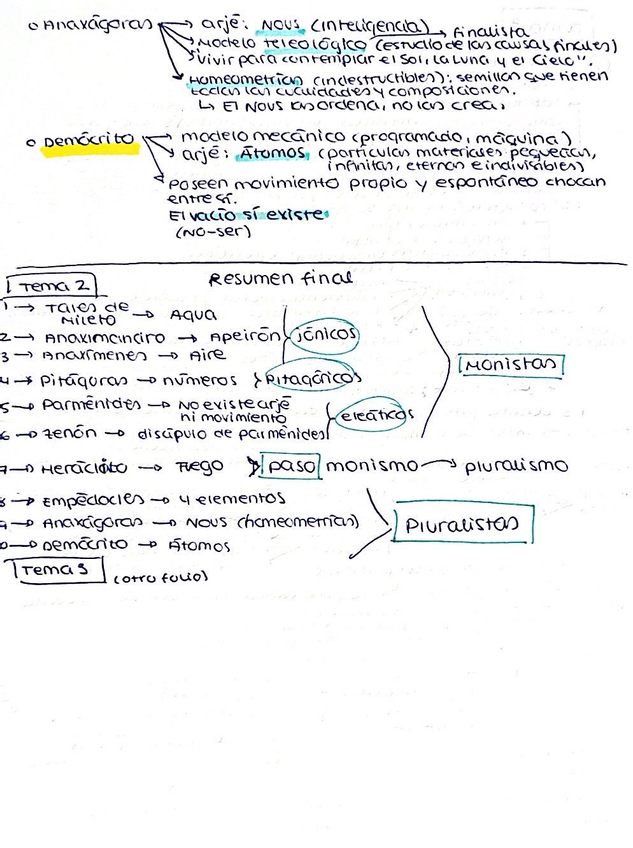 o Anaxágoras → arjé: NOUS (inteligencia) → Finalista
→ Modelo teleológico (estudio de las causas finales)
→ "Vivir para contemplar el Sol, la Luna y el Cielo".
→ Homeometrías (indestructibles): semillas que tienen
todas las cualidades y composiciones.
↳ El NOUS las ordena, no las crea.
o Demócrito → modelo mecánico (programado, máquina)
→ arjé: Átomos (partículas materiales pequeñas,
infinitas, eternas e indivisibles)
→ Poseen movimiento propio y espontáneo chocan
entre sí.
El vacío sí existe
(NO-ser)
Tema 2 Resumen final
1 → Tales de Mileto → Agua
2 → Anaximandro → Apeirón
3 → Anaxímenes → Aire
jónicos
4 → Pitágoras → números } Pitagóricos
Monistas
5 → Parménides → No existe arjé
ni movimiento
6 → Zenón → discípulo de Parménides
eleáticos
7 → Heráclito → Fuego } paso monismo → pluralismo
8 → Empédocles → 4 elementos
9 → Anaxágoras → NOUS (homeometrías)
0 → Demócrito → Átomos
Pluralistas
Tema 3 (otro folio)